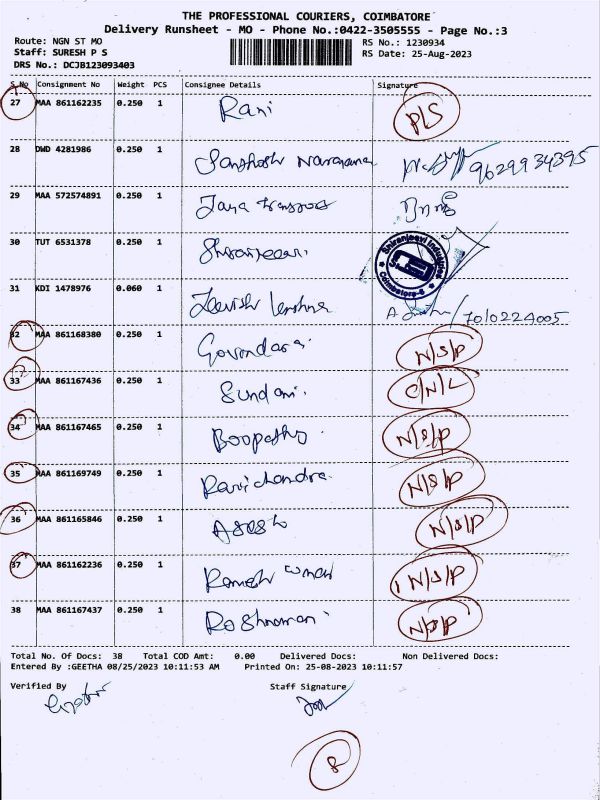 THE PROFESSIONAL COURIERS, COIMBATORE
Delivery Runsheet - MO - Phone No.:0422-3505555 - Page No.:3
Route: NGN ST MO
RS No.: 1230934
Staff: SURESH P S
RS Date: 25-Aug-2023
DRS No.: DCJB123093403
S.No Consignment No Weight PCS Consignee Details Signature
27 MAA 861162235 0.250 1 Rani P/S
28 DWD 4281986 0.250 1 Santhosh Narayana 9629934395
29 MAA 572574891 0.250 1 Jaya
30 TUT 6531378 0.250 1 Shiranjeevi Industries Coimbatore-6
31 KDI 1478976 0.060 1 7010224005
32 MAA 861168380 0.250 1 Govindaraj N/S/P
33 MAA 861167436 0.250 1 Sundari C/N/L
34 MAA 861167465 0.250 1 Boopathy N/S/P
35 MAA 861169749 0.250 1 Ravichandra N/S/P
36 MAA 861165846 0.250 1 N/S/P
37 MAA 861162236 0.250 1 Ramesh Kumar N/S/P
38 MAA 861167437 0.250 1 N/S/P
Total No. Of Docs: 38 Total COD Amt: 0.00 Delivered Docs: Non Delivered Docs:
Entered By :GEETHA 08/25/2023 10:11:53 AM Printed On: 25-08-2023 10:11:57
Verified By Staff Signature
8